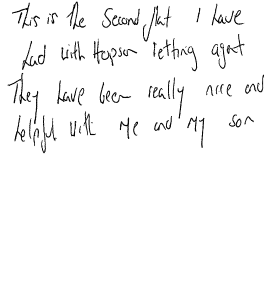 This is the Second flat I have
had with Hopson letting agent
They have been really nice and
helpful with me and my son